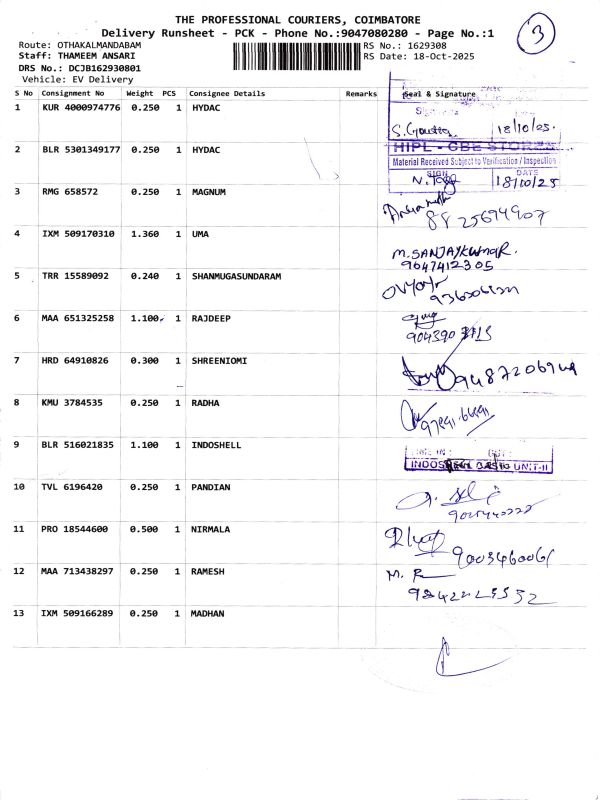 THE PROFESSIONAL COURIERS, COIMBATORE
3
Delivery Runsheet - PCK - Phone No.:9047080280 - Page No.:1
Route: OTHAKALMANDABAM
RS No.: 1629308
Staff: THAMEEM ANSARI
RS Date: 18-Oct-2025
DRS No.: DCJB162930801
Vehicle: EV Delivery
S No Consignment No Weight PCS Consignee Details Remarks Seal & Signature
1 KUR 4000974776 0.250 1 HYDAC
18/10/25.
2 BLR 5301349177 0.250 1 HYDAC
HIPL - CBE STORES
Material Received Subject to Verification / Inspection
SIGN DATE
18/10/25
3 RMG 658572 0.250 1 MAGNUM
8825694907
4 IXM 509170310 1.360 1 UMA
M.SANJAYKUMAR.
9047412305
5 TRR 15589092 0.240 1 SHANMUGASUNDARAM
6 MAA 651325258 1.100 1 RAJDEEP
7 HRD 64910826 0.300 1 SHREENIOMI
8 KMU 3784535 0.250 1 RADHA
9 BLR 516021835 1.100 1 INDOSHELL
UNIT-II
10 TVL 6196420 0.250 1 PANDIAN
11 PRO 18544600 0.500 1 NIRMALA
9003460061
12 MAA 713438297 0.250 1 RAMESH
13 IXM 509166289 0.250 1 MADHAN